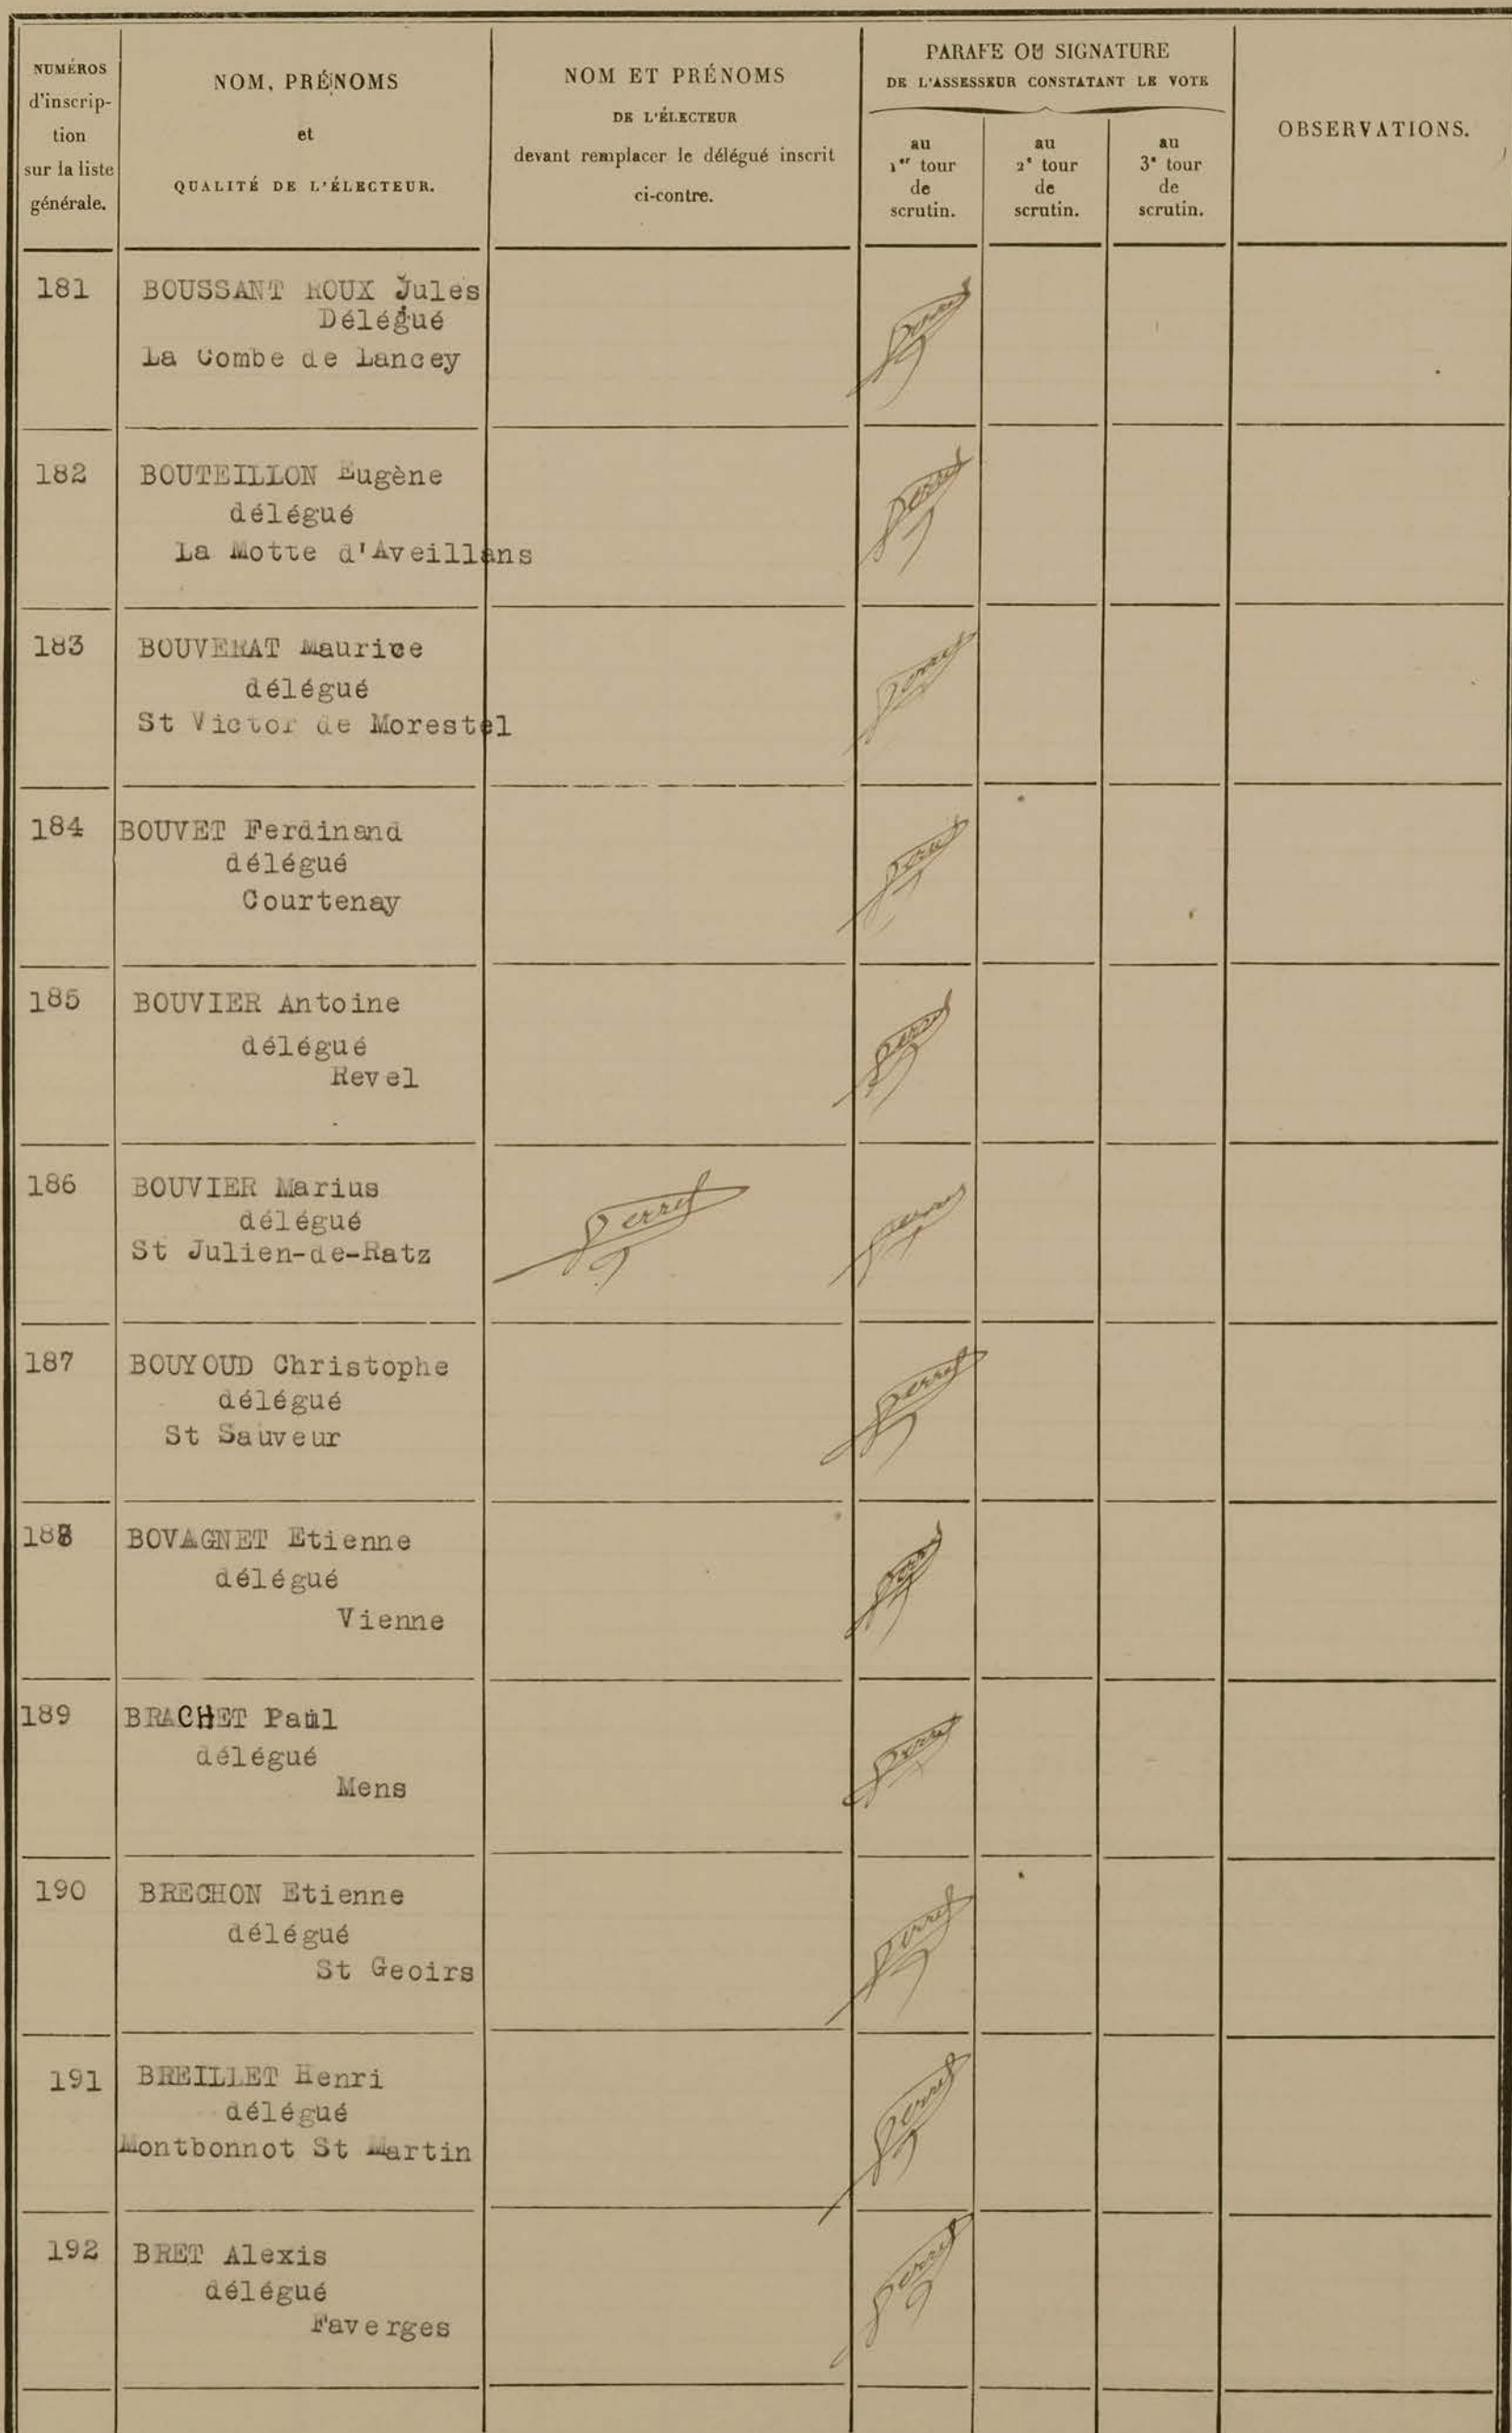 NUMÉROS
d'inscrip-
tion
sur la liste
générale.
NOM, PRÉNOMS
et
QUALITÉ DE L'ÉLECTEUR.
NOM ET PRÉNOMS
DE L'ÉLECTEUR
devant remplacer le délégué inscrit
ci-contre.
PARAFE OU SIGNATURE
DE L'ASSESSEUR CONSTATANT LE VOTE
au
1er tour
de
scrutin.
au
2e tour
de
scrutin.
au
3e tour
de
scrutin.
OBSERVATIONS.
181 BOUSSANT ROUX Jules
Délégué
La Combe de Lancey
182 BOUTEILLON Eugène
délégué
La Motte d'Aveillans
183 BOUVERAT Maurice
délégué
St Victor de Morestel
184 BOUVET Ferdinand
délégué
Courtenay
185 BOUVIER Antoine
délégué
Revel
186 BOUVIER Marius
délégué
St Julien-de-Ratz
187 BOUYOUD Christophe
délégué
St Sauveur
188 BOVAGNET Etienne
délégué
Vienne
189 BRACHET Paul
délégué
Mens
190 BRECHON Etienne
délégué
St Geoirs
191 BREILLET Henri
délégué
Montbonnot St Martin
192 BRET Alexis
délégué
Faverges